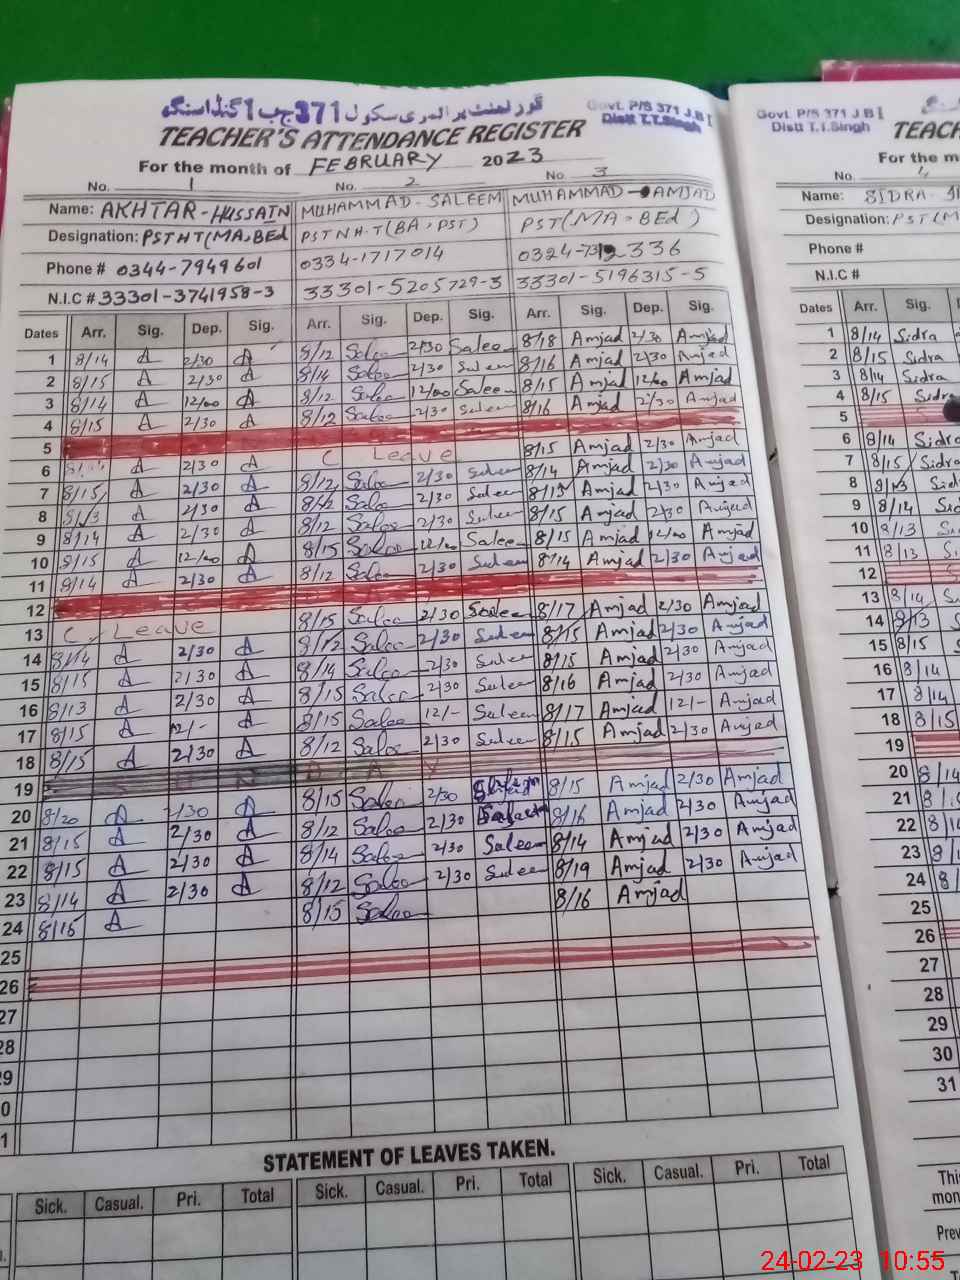 گورنمنٹ پرائمری سکول 371 ج ب 1 گنڈاسنگھ
Govt. P/S 371 J.B I
Distt T.T.Singh
TEACHER'S ATTENDANCE REGISTER
For the month of FEBRUARY 2023
No. 1 No. 2 No. 3
Name: AKHTAR-HUSSAIN MUHAMMAD-SALEEM MUHAMMAD-AMJAD
Designation: PSTHT(MA,BEd PSTNH.T(BA,PST) PST(MA,BEd)
Phone # 0344-7949601 0334-1717014
N.I.C # 33301-3741958-3 33301-5205729-3 33301-5196315-5
Dates Arr. Sig. Dep. Sig. Arr. Sig. Dep. Sig. Arr. Sig. Dep. Sig.
1 8/14 A 2/30 A 8/12 Salee 2/30 Saleem 8/18 Amjad 2/30 Amjad
2 8/15 A 2/30 A 8/14 Salee 2/30 Saleem 8/16 Amjad 2/30 Amjad
3 8/14 A 12/00 A 8/12 Salee 12/00 Saleem 8/15 Amjad 12/00 Amjad
4 8/15 A 2/30 A 8/12 Salee 2/30 Saleem 8/16 Amjad 2/30 Amjad
5
6 A 2/30 A C Leave 8/15 Amjad 2/30 Amjad
7 8/15 A 2/30 A 8/12 Salee 2/30 Saleem 8/14 Amjad 2/30 Amjad
8 8/13 A 2/30 A 8/12 Salee 2/30 Saleem 8/15 Amjad 2/30 Amjad
9 8/14 A 2/30 A 8/12 Salee 2/30 Saleem 8/15 Amjad 2/30 Amjad
10 8/15 A 12/00 A 8/15 Salee 12/00 Saleem 8/15 Amjad 12/00 Amjad
11 8/14 A 2/30 A 8/12 Salee 2/30 Saleem 8/14 Amjad 2/30 Amjad
12
13 C. Leave 8/15 Salee 2/30 Saleem 8/17 Amjad 2/30 Amjad
14 8/14 A 2/30 A 8/12 Salee 2/30 Saleem 8/15 Amjad 2/30 Amjad
15 8/15 A 2/30 A 8/14 Salee 2/30 Saleem 8/15 Amjad 2/30 Amjad
16 8/13 A 2/30 A 8/15 Salee 2/30 Saleem 8/16 Amjad 2/30 Amjad
17 8/15 A 12/- A 8/15 Salee 12/- Saleem 8/17 Amjad 12/- Amjad
18 8/15 A 2/30 A 8/12 Salee 2/30 Saleem 8/15 Amjad 2/30 Amjad
19 SUNDAY
20 8/20 A 2/30 A 8/15 Salee 2/30 8/15 Amjad 2/30 Amjad
21 8/15 A 2/30 A 8/12 Salee 2/30 Saleem 8/16 Amjad 2/30 Amjad
22 8/15 A 2/30 A 8/14 Salee 2/30 Saleem 8/14 Amjad 2/30 Amjad
23 8/14 A 2/30 A 8/12 Salee 2/30 Saleem 8/19 Amjad 2/30 Amjad
24 8/15 A 8/15 Salee 8/16 Amjad
25
26
27
28
29
0
1
STATEMENT OF LEAVES TAKEN.
Sick. Casual. Pri. Total Sick. Casual. Pri. Total Sick. Casual. Pri. Total
Govt. P/S 371 J.B I
Distt T.T.Singh
TEAC
For the m
No. 4
Name: SIDRA
Designation: PST(M
Phone #
N.I.C #
Dates Arr. Sig.
1 8/14 Sidra
2 8/15 Sidra
3 8/14 Sidra
4 8/15 Sidra
5
6 8/14 Sidra
7 8/15 Sidra
8 8/13 Sid
9 8/14 Sid
10 8/13 Si
11 8/13 S
12
13 8/14 S
14 8/13
15 8/15
16 8/14
17 8/14
18 8/15
19
20 8/14
21 8/
22 8/14
23 8/
24 8/
25
26
27
28
29
30
31
This
mon
Prev
24-02-23 10:55